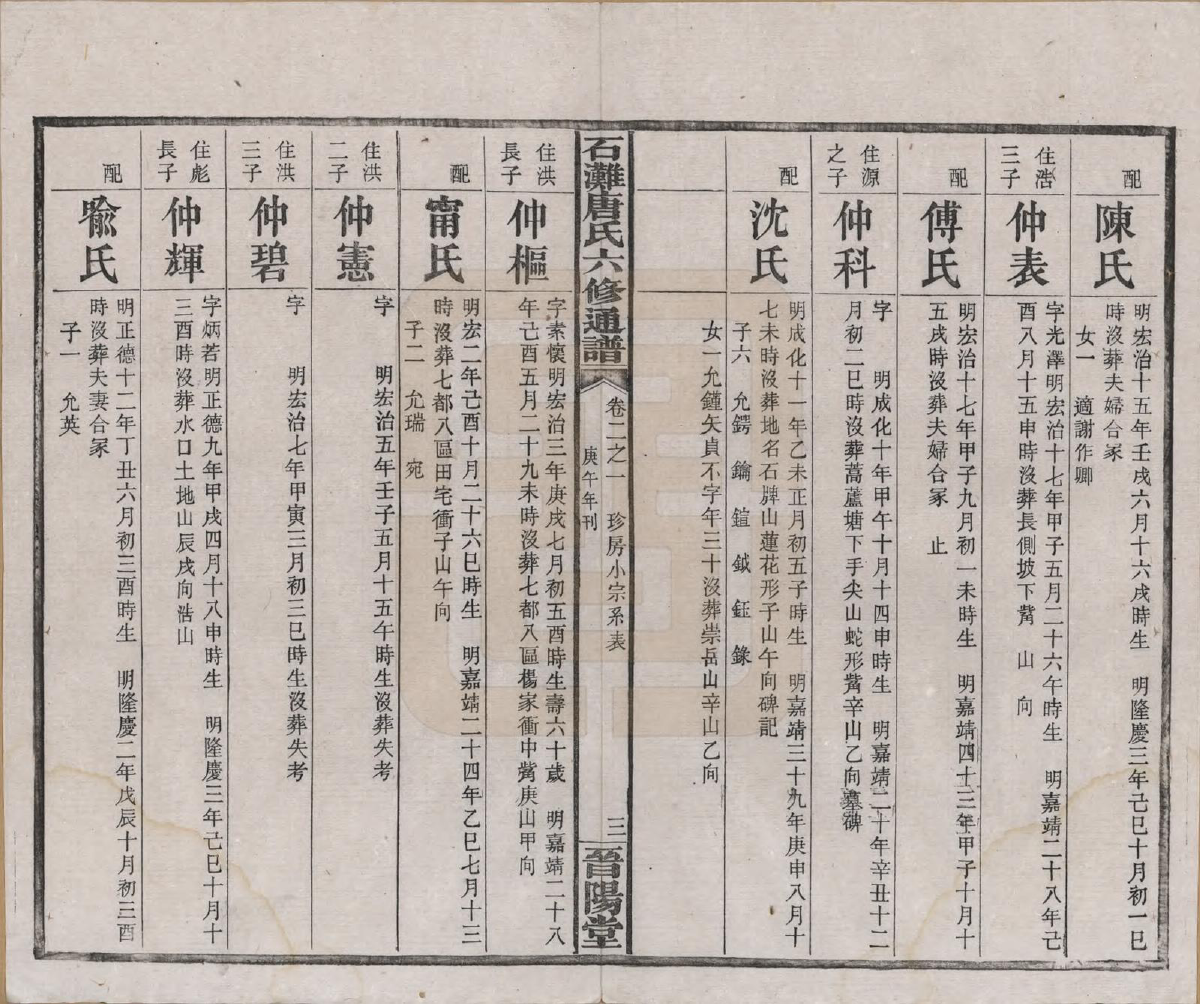 配
陳氏
明宏治十五年壬戌六月十六戌時生　明隆慶三年己巳十月初一巳
時沒葬夫婦合冢
女一　適謝作卿
住浩
三子
仲表
字光澤明宏治十七年甲子五月二十六午時生　明嘉靖二十八年己
酉八月十五申時沒葬長側坡下觜　山　向
配
傅氏
明宏治十七年甲子九月初一未時生　明嘉靖四十三年甲子十月十
五戌時沒葬夫婦合冢　止
住源
之子
仲科
字　明成化十年甲午十月十四申時生　明嘉靖二十年辛丑十二
月初二巳時沒葬蒿蘆塘下手尖山蛇形觜辛山乙向墓碑
配
沈氏
明成化十一年乙未正月初五子時生　明嘉靖三十九年庚申八月十
七未時沒葬地名石牌山蓮花形子山午向碑記
子六　允鍔　鑰　鍹　鉞　鈺　錄
女一允鍾矢貞不字年三十沒葬崇岳山辛山乙向
石灘唐氏六修通譜
卷二之一　珍房小宗系表
庚午年刊
三
晉陽堂
住洪
長子
仲樞
字素懷明宏治三年庚戌七月初五酉時生壽六十歲　明嘉靖二十八
年己酉五月二十九未時沒葬七都八區楊家衝中觜庚山甲向
配
甯氏
明宏二年己酉十月二十六巳時生　明嘉靖二十四年乙巳七月十三
時沒葬七都八區田宅衝子山午向
子二　允瑞　宛
住洪
二子
仲憲
字　明宏治五年壬子五月十五午時生沒葬失考
住洪
三子
仲碧
字　明宏治七年甲寅三月初三巳時生沒葬失考
住彪
長子
仲輝
字炳若明正德九年甲戌四月十八申時生　明隆慶三年己巳十月十
三酉時沒葬水口土地山辰戌向浩山
配
喻氏
明正德十二年丁丑六月初三酉時生　明隆慶二年戊辰十月初三酉
時沒葬夫妻合冢
子一　允英